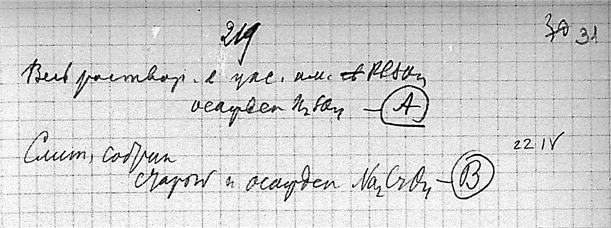 219
30 31
Весь раствор. в укс. ам. PbSO4
осажден H2SO4 — A
22 IV
Слит, собран
и осажден Na2CrO4 — B